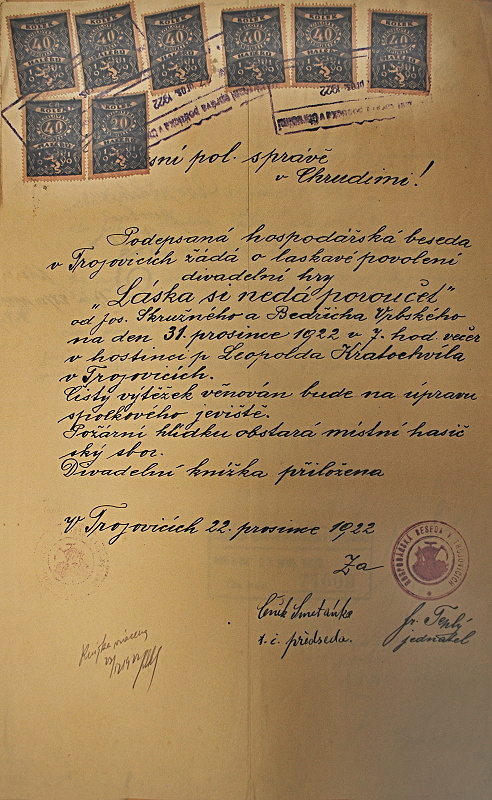 KOLEK 40 HALÉŘŮ
KOLEK 40 HALÉŘŮ
KOLEK 40 HALÉŘŮ
KOLEK 40 HALÉŘŮ
KOLEK 40 HALÉŘŮ
KOLEK 40 HALÉŘŮ
KOLEK 40 HALÉŘŮ
KOLEK 40 HALÉŘŮ
1922
správa politická v
1922
sní pol. správě
v Chrudimi!
Podepsaná hospodářská beseda
v Trojovicích žádá o laskavé povolení
divadelní hry
„Láska si nedá poroučet"
od Jos. Skružného a Bedřicha Vrbského
na den 31. prosince 1922 v 7. hod. večer
v hostinci p. Leopolda Kratochvíla
v Trojovicích.
Čistý výtěžek věnován bude na úpravu
spolkového jeviště.
Požární hlídku obstará místní hasič
ský sbor.
Divadelní knížka přiložena
V Trojovicích 22. prosince 1922
Za
HOSPODÁŘSKÁ BESEDA V TROJOVICÍCH
Čeněk Smetánka
t. č. předseda.
Fr. Teplý
jednatel